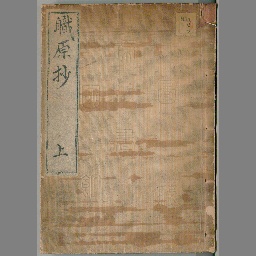 職原抄
上